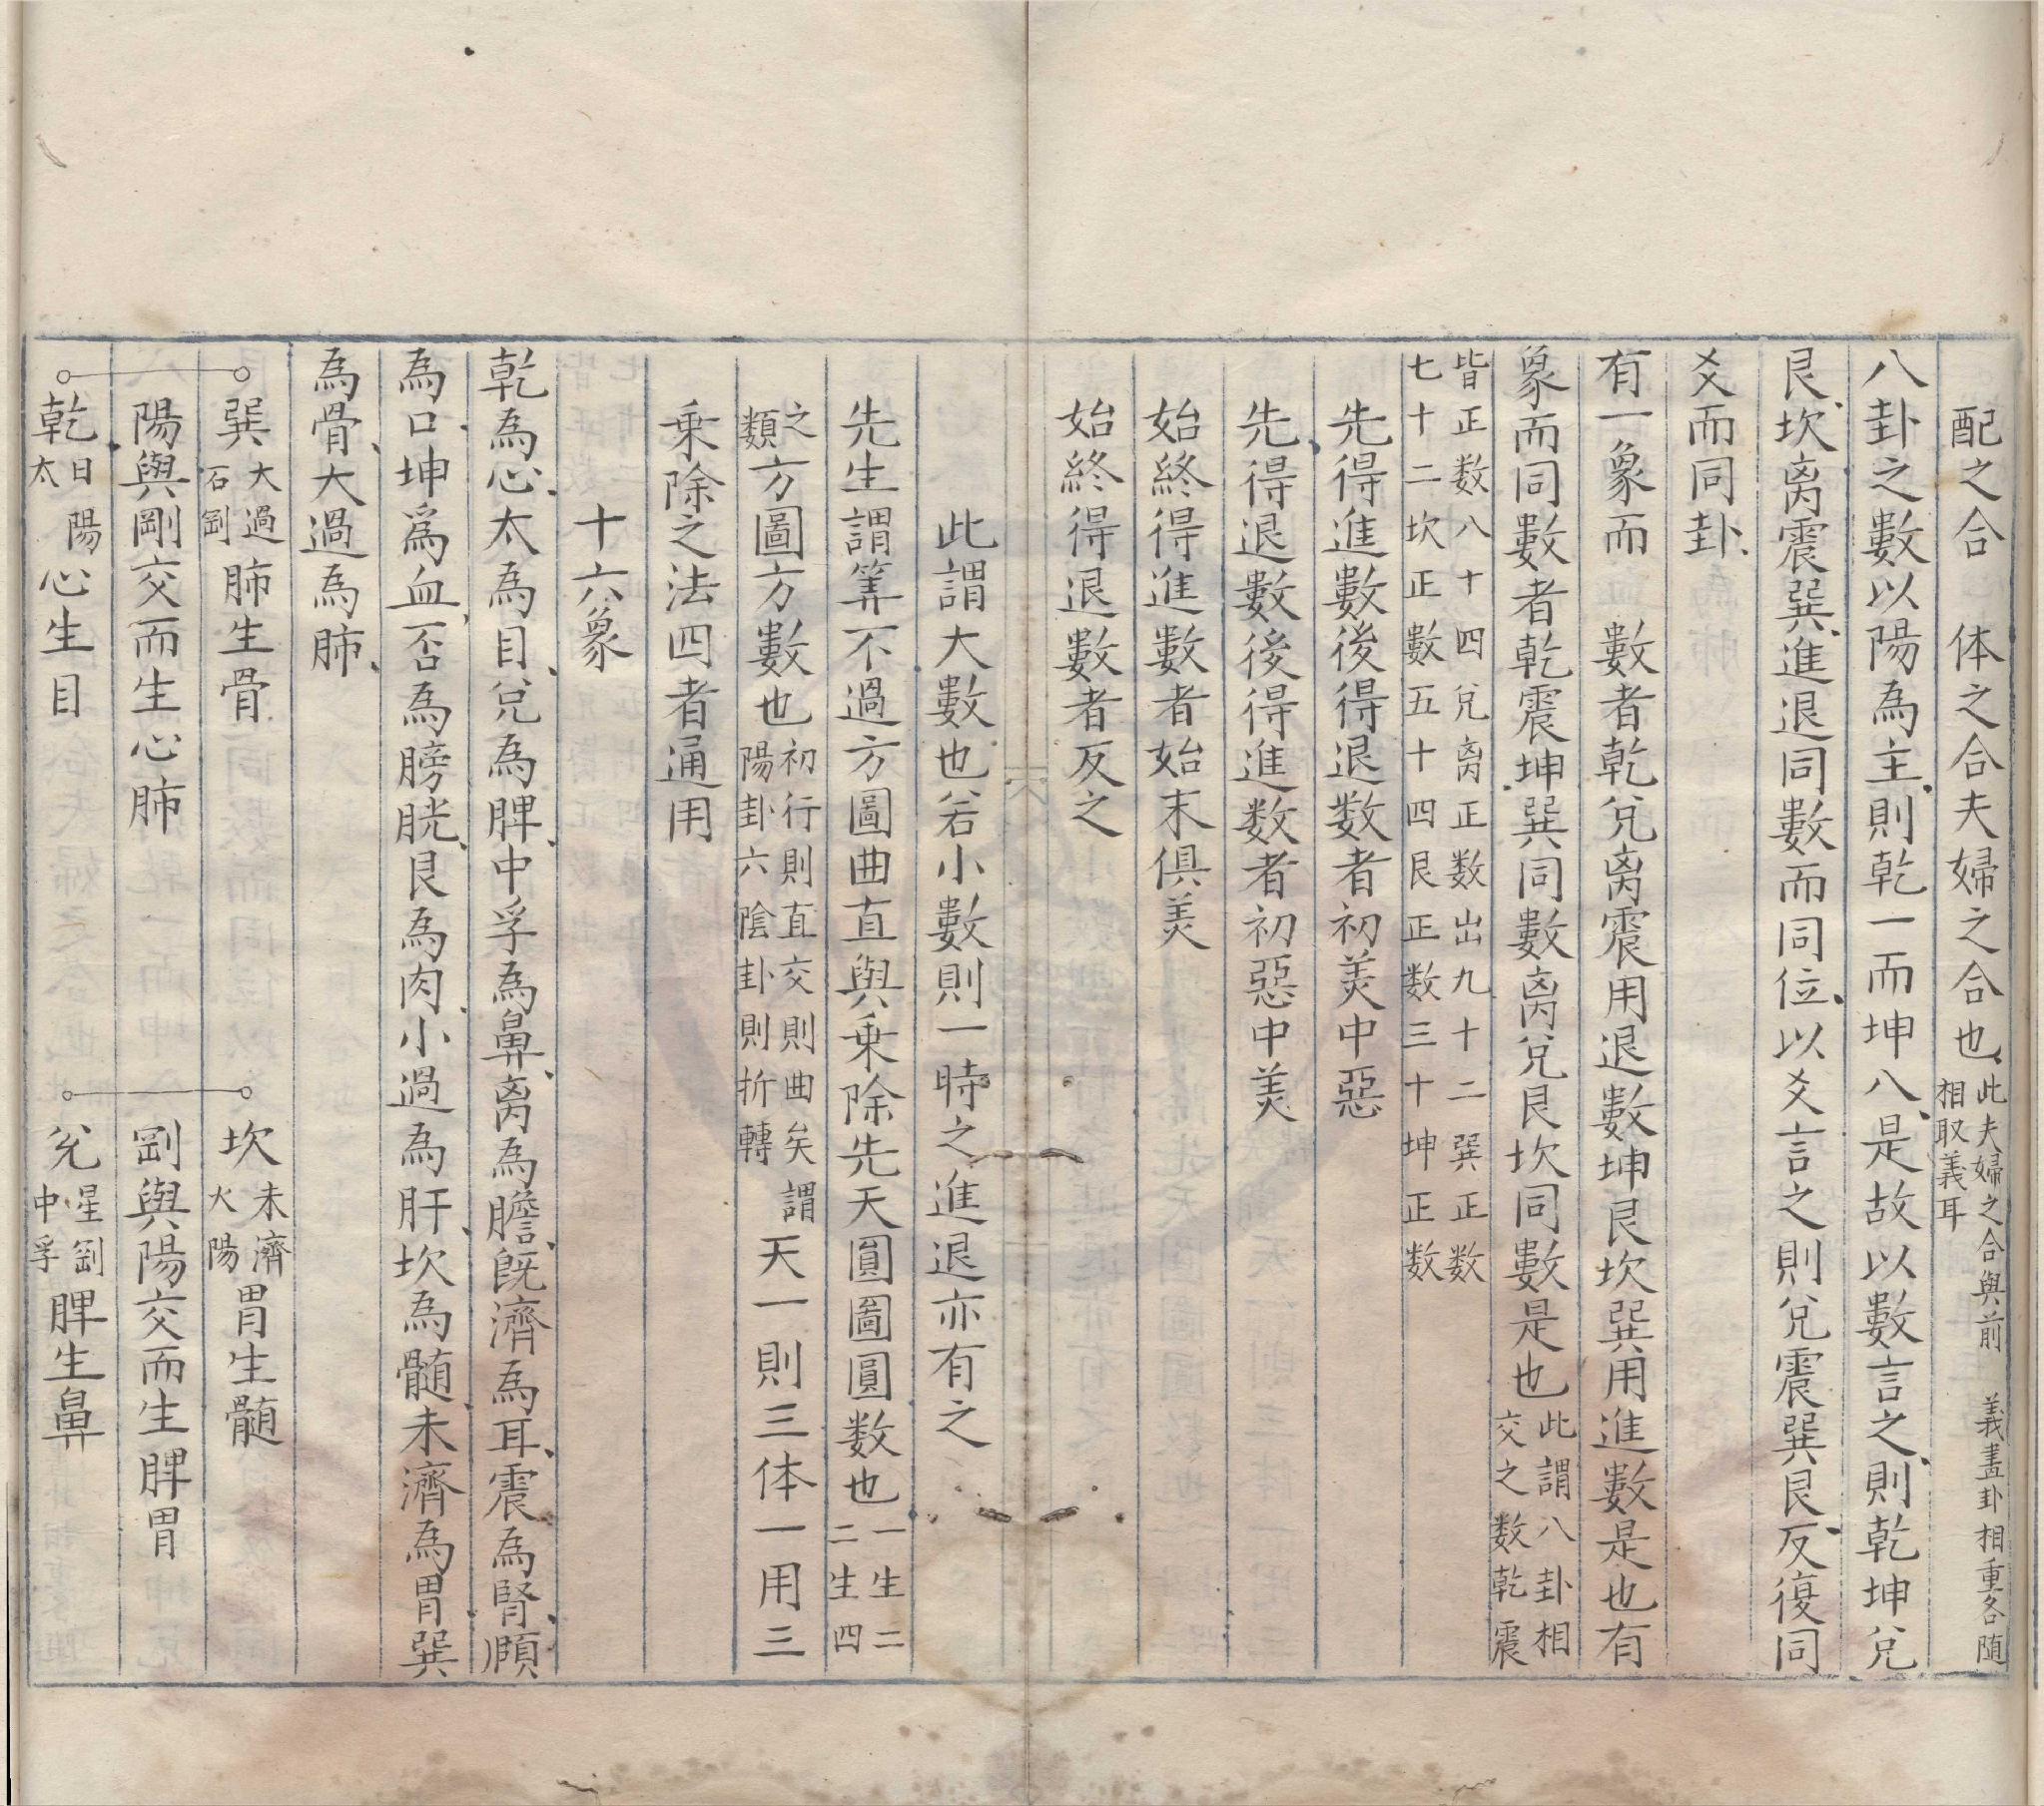 配之合　体之合夫婦之合也此夫婦之合與前　義畫卦相重各随相取義耳
八卦之數以陽為主則乾一而坤八是故以數言之則乾坤兌
艮坎离震巽進退同數而同位以爻言之則兌震巽艮反復同
爻而同卦
有一象而　數者乾兌离震用退數坤艮坎巽用進數是也有
象而同數者乾震坤巽同數离兌艮坎同數是也此謂八卦相交之数乾震
皆正数八十四兌离正数出九十二巽正数七十二坎正數五十四艮正数三十坤正数
先得進數後得退数者初美中惡
先得退數後得進数者初惡中美
始終得進數者始末俱美
始終得退數者反之
此謂大數也若小數則一時之進退亦有之
先生謂筭不過方圖曲直與乗除先天圓圖圓数也一生二二生四
之類方圖方數也初行則直交則曲矣　謂陽卦六陰卦則折轉天一則三体一用三
乗除之法四者通用
十六象
乾為心太為目兌為脾中孚為鼻离為膽既濟為耳震為腎頤
為口坤爲血否為膀胱艮為肉小過為肝坎為髄未濟為胃巽
為骨大過為肺
巽大過石剛肺生骨　坎未濟火陽胃生髄
陽與剛交而生心肺　剛與陽交而生脾胃
乾日陽太心生目　兌星剛中孚脾生鼻